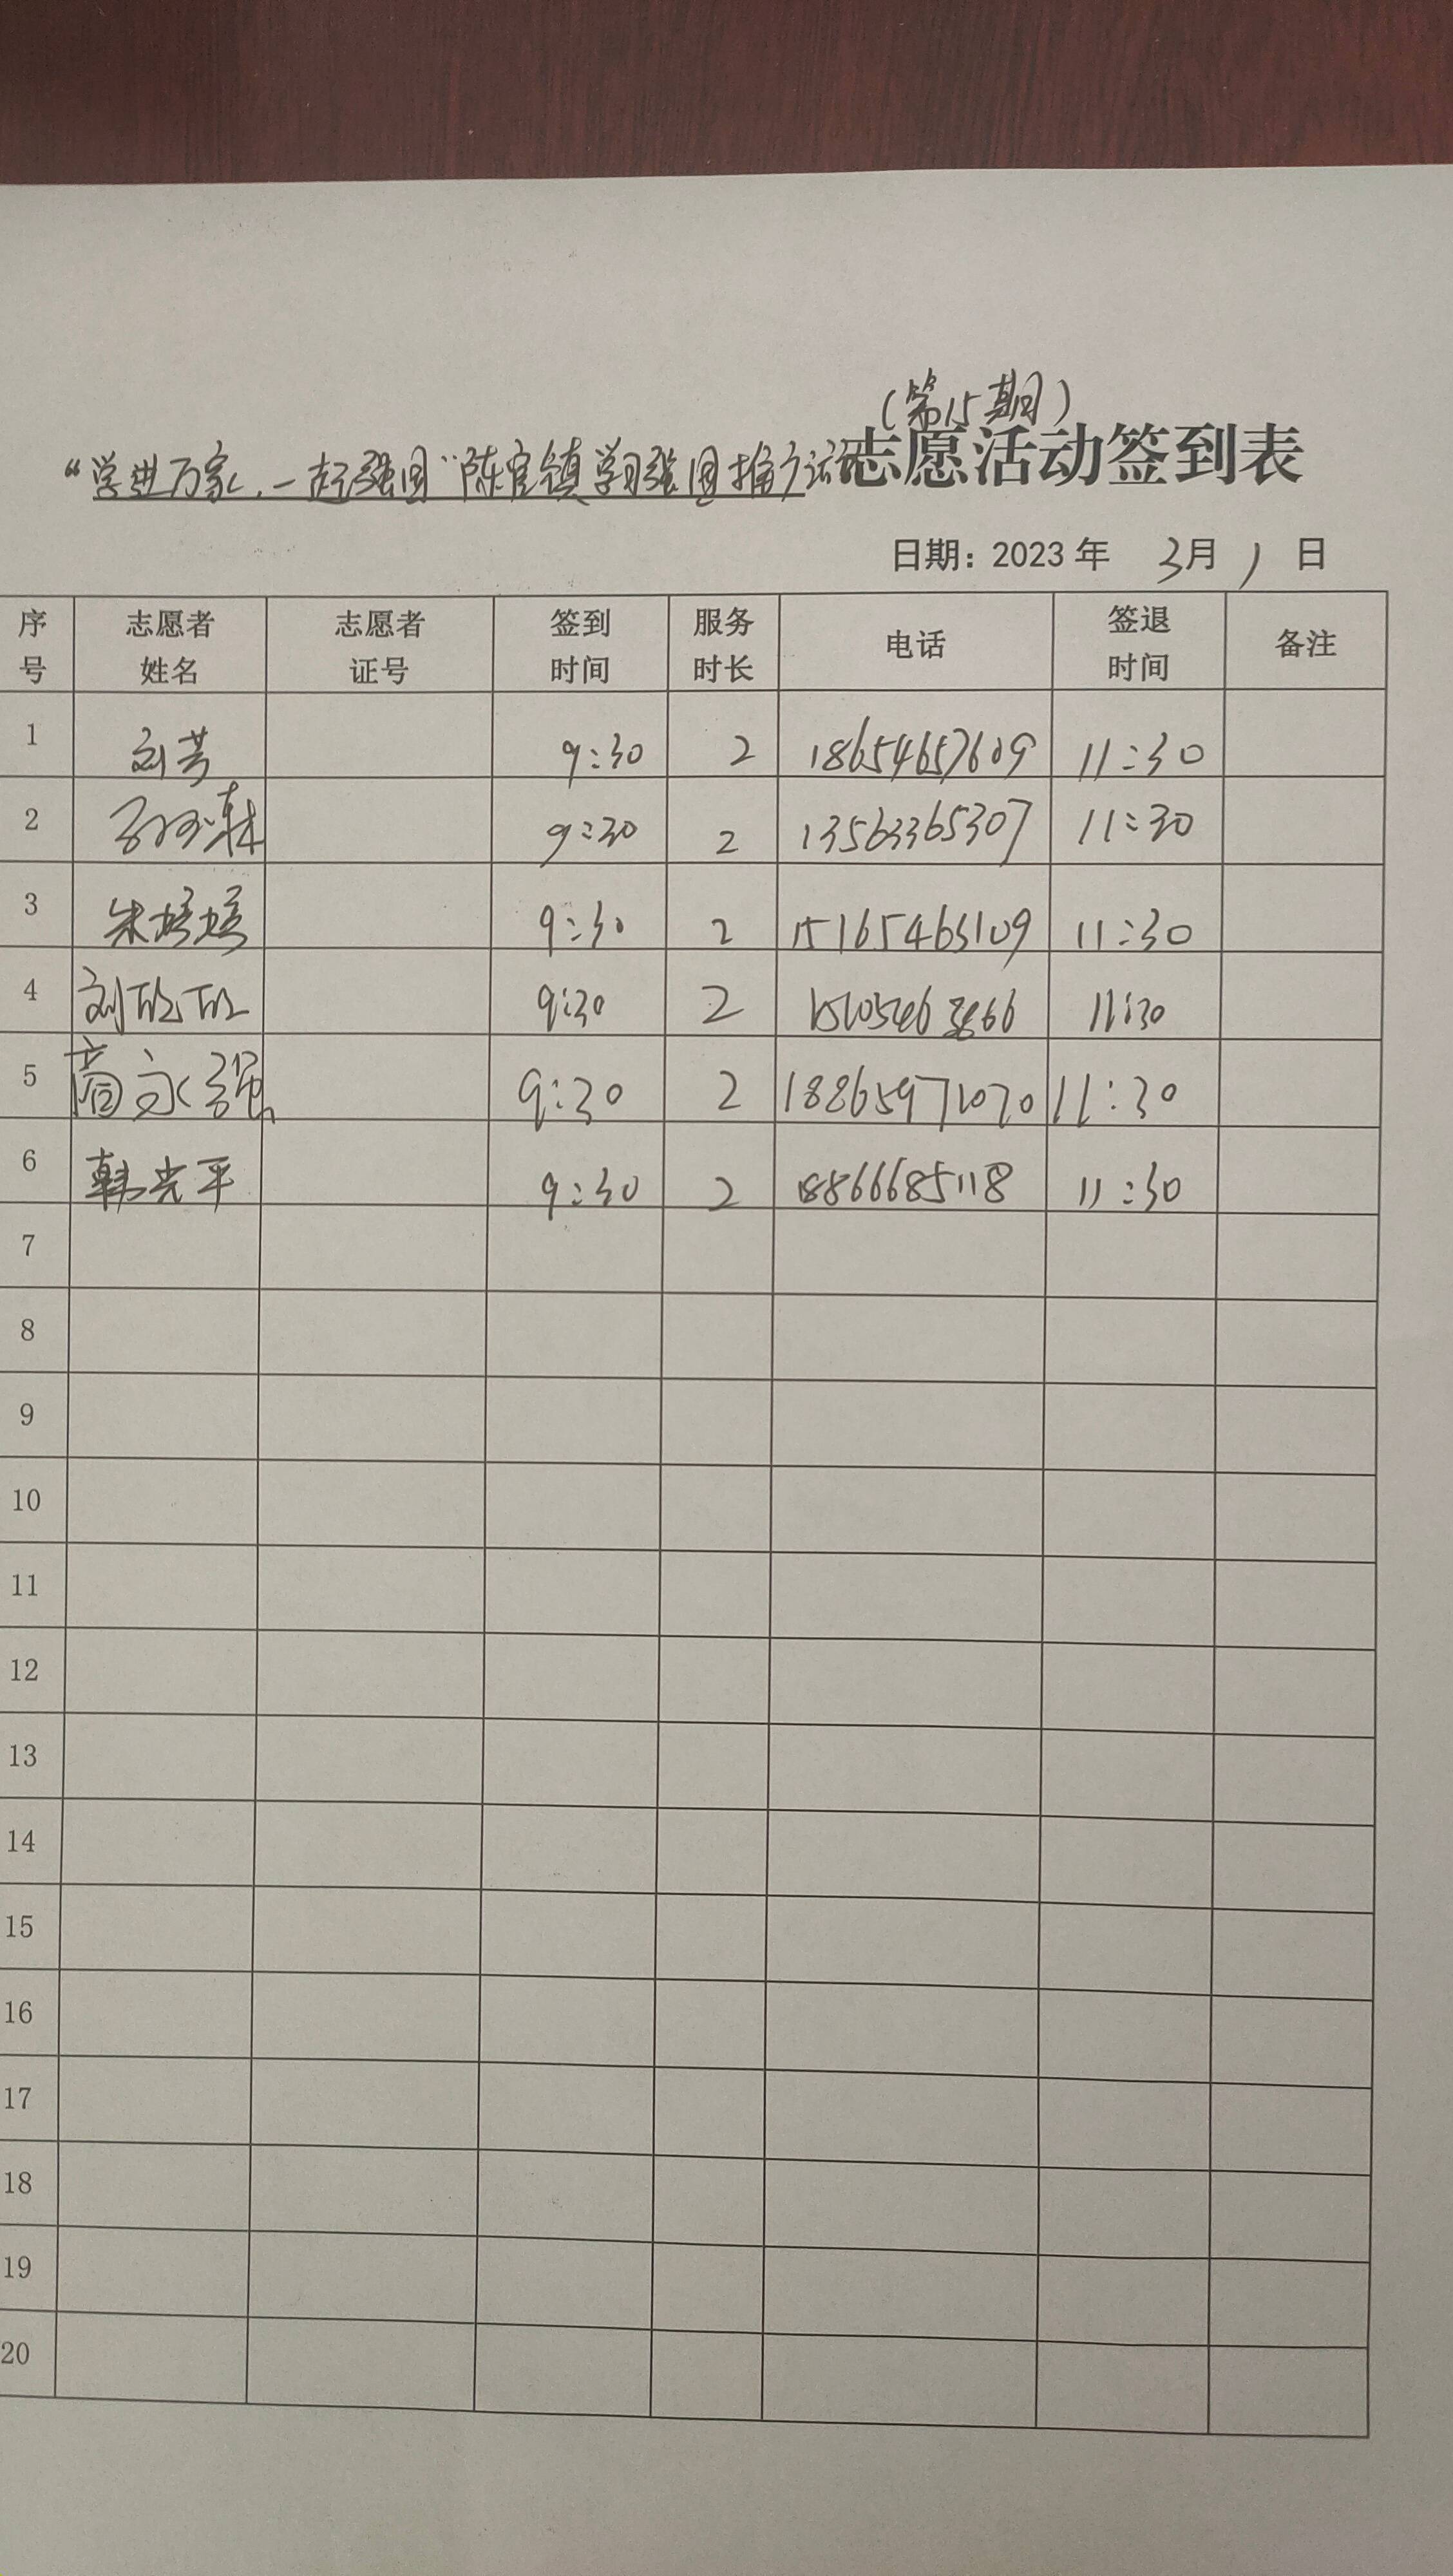 （第15期）
“学进万家，一起强国”陈官镇学习强国推广活动志愿活动签到表
日期：2023 年 3月 1 日
序号 志愿者姓名 志愿者证号 签到时间 服务时长 电话 签退时间 备注
1 刘芳 9:30 2 18654657609 11:30
2 9:30 2 13563365307 11:30
3 朱婷婷 9:30 2 15165463109 11:30
4 刘欣欣 9:30 2 11:30
5 高永强 9:30 2 18865971070 11:30
6 韩光平 9:30 2 18866685118 11:30
7
8
9
10
11
12
13
14
15
16
17
18
19
20